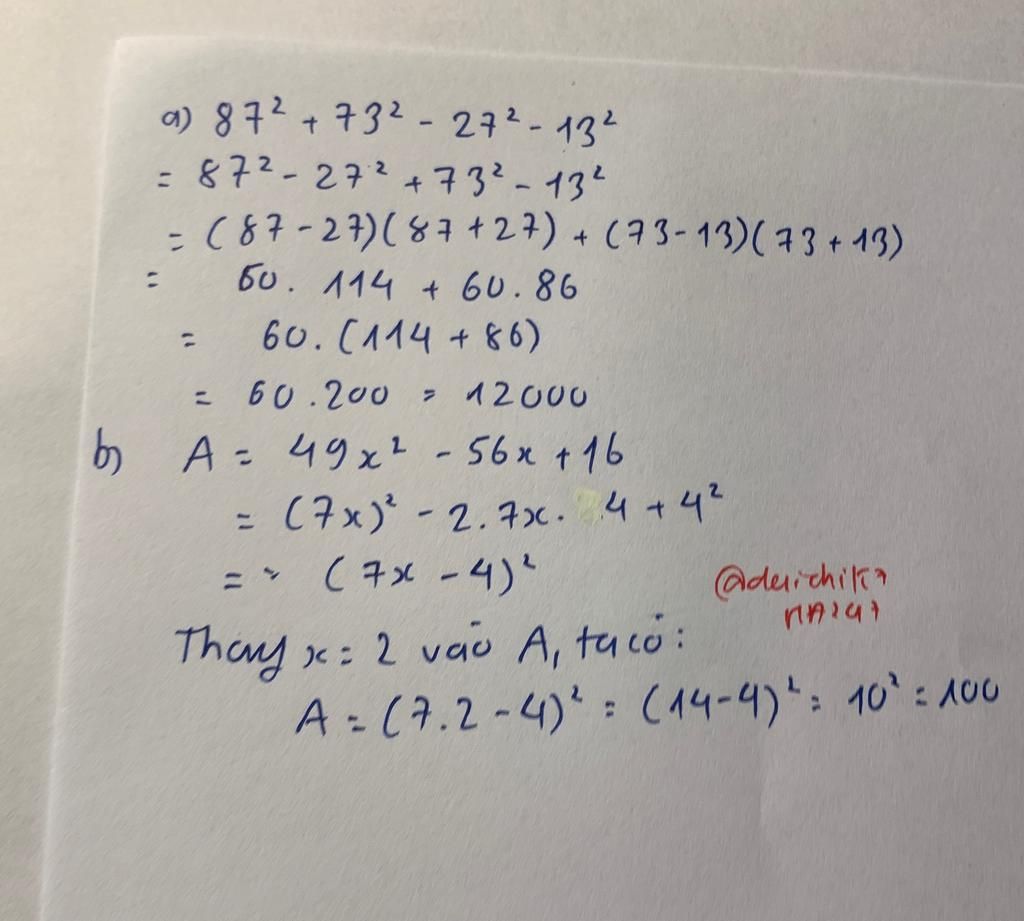 a) 87² + 73² - 27² - 13²
= 87² - 27² + 73² - 13²
= (87 - 27)(87 + 27) + (73 - 13)(73 + 13)
= 60. 114 + 60. 86
= 60. (114 + 86)
= 60. 200 = 12000
b) A = 49x² - 56x + 16
= (7x)² - 2. 7x. 4 + 4²
= (7x - 4)²
Thay x = 2 vào A, ta có:
A = (7. 2 - 4)² = (14 - 4)² = 10² = 100